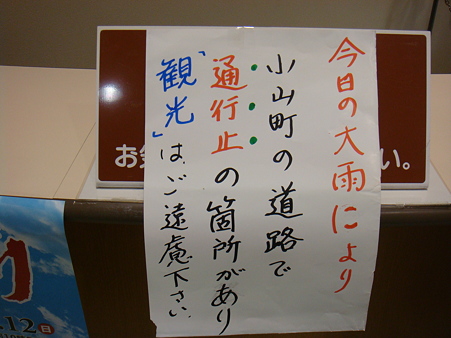 今日の大雨により
小山町の道路で
通行止の箇所があり
「観光」は、ご遠慮下さい。
お
い。
り
.12(日)